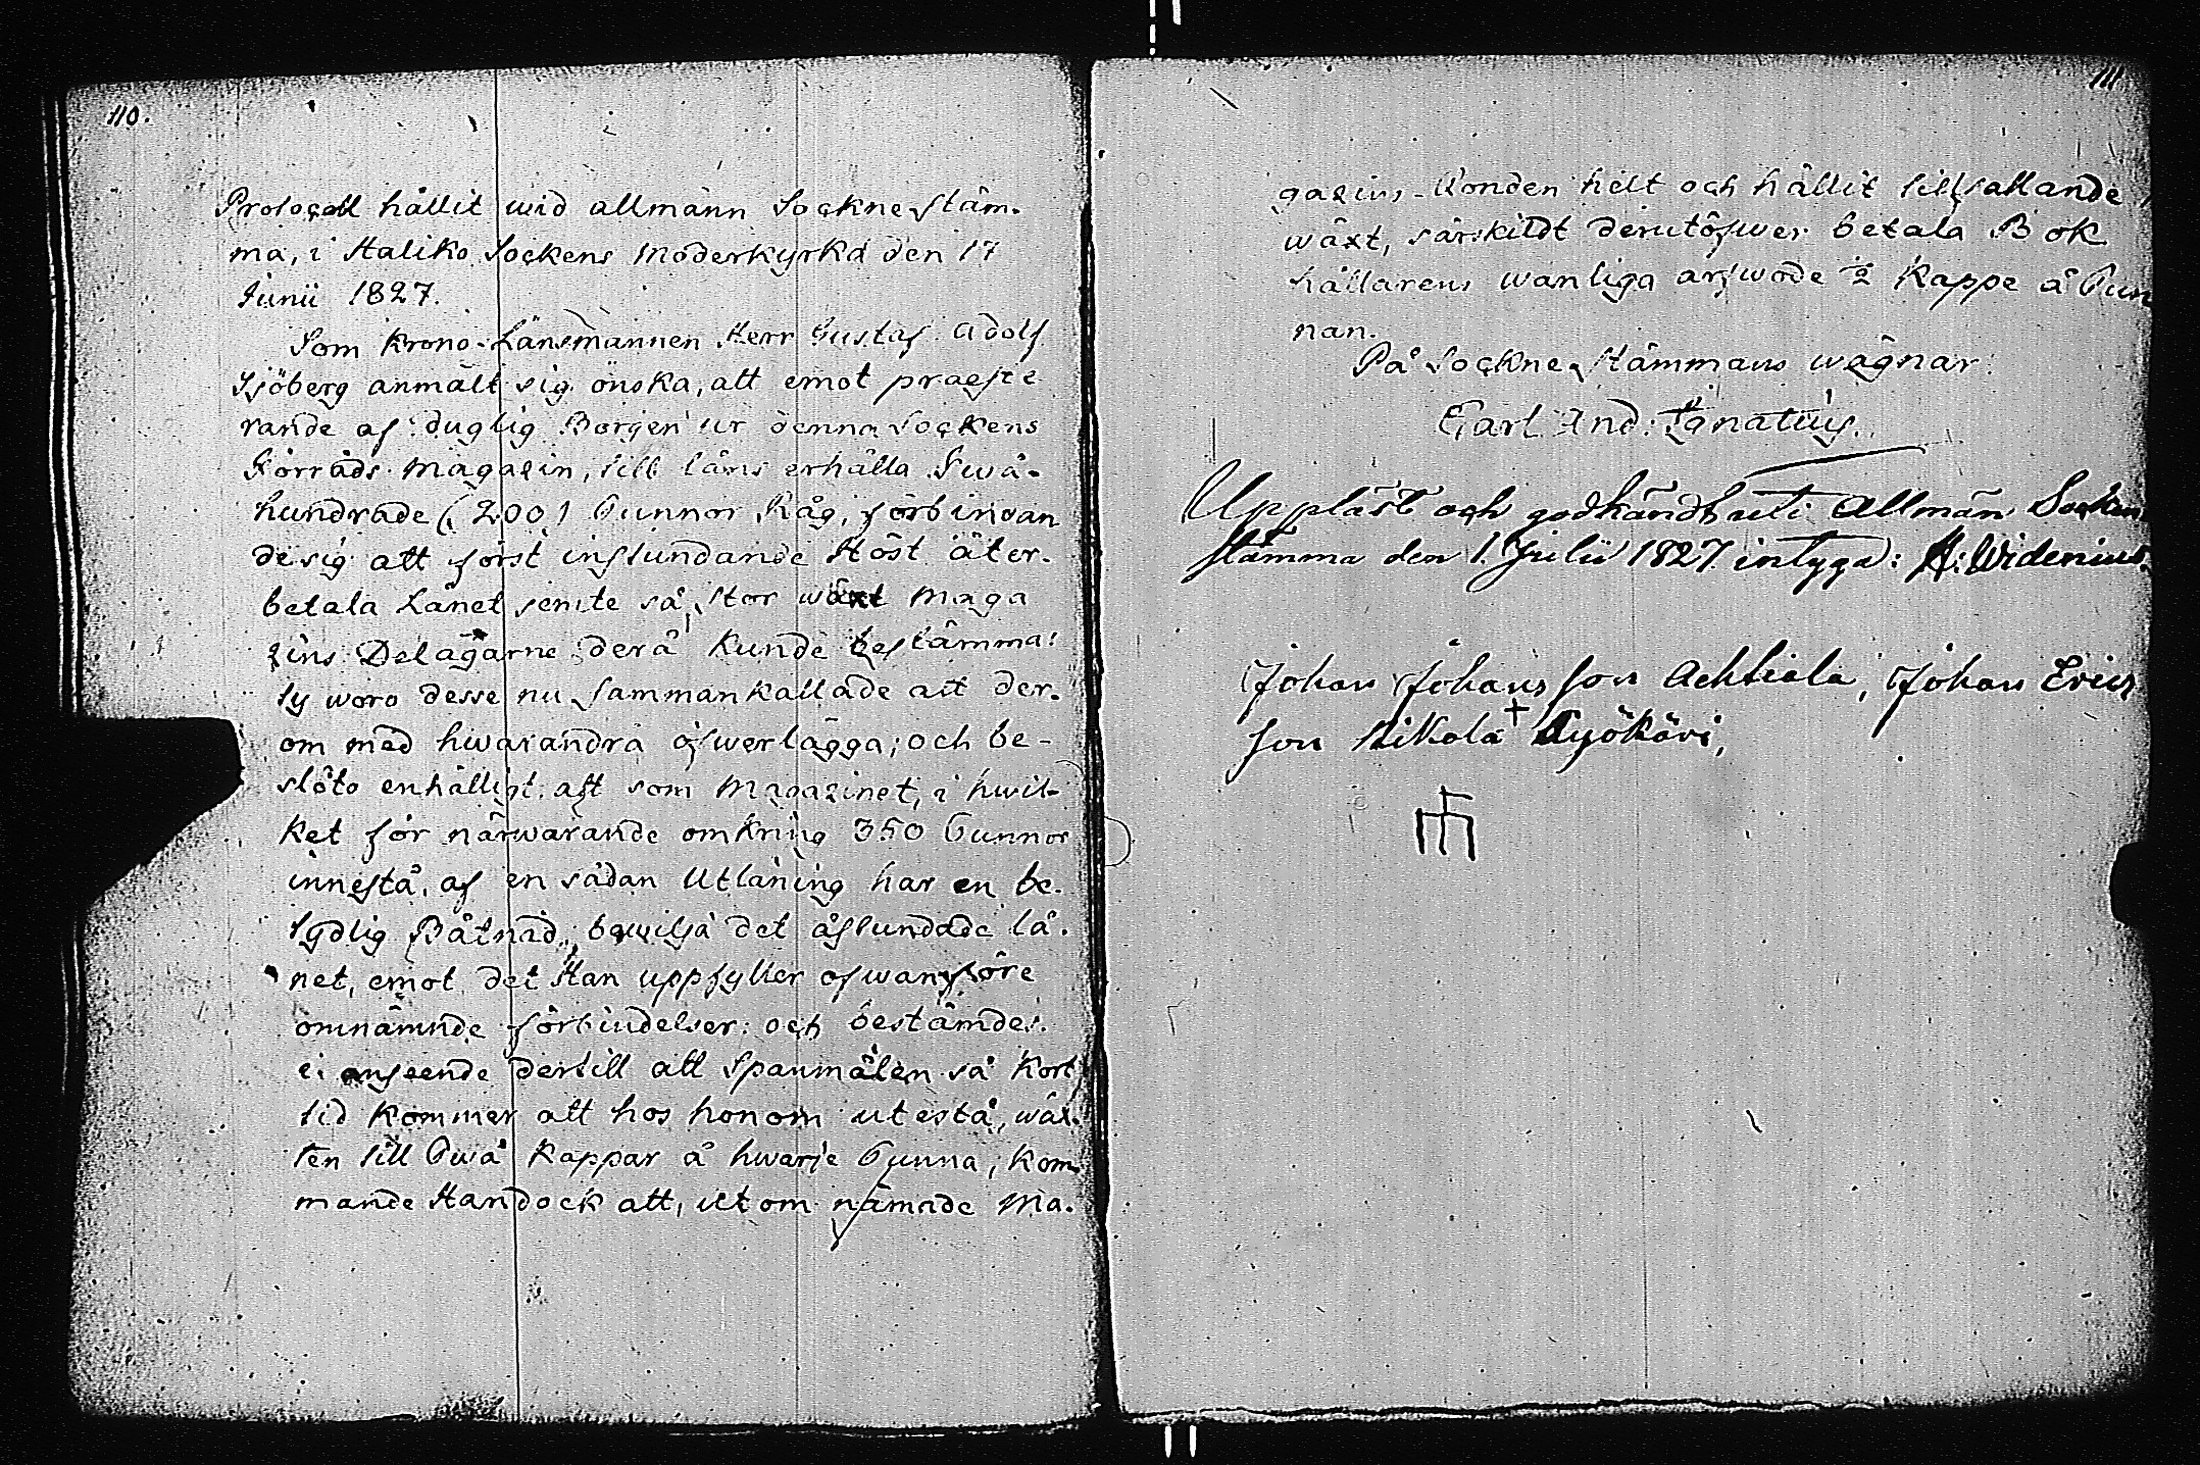 110.
Protocoll hållit wid allmänn Sockne stäm-
ma, i Haliko Sockens Moderkyrka den 17
Junii 1827.
Som Krono-Länsmannen Herr Gustaf Adolf
Sjöberg anmält sig önska, att emot præste
rande af duglig Borgen ur denna Sockens
Förråds Magazin, till låns erhålla Twå-
hundrade (200) Tunnor Råg, förbindan
de sig att först instundande Höst åter-
betala Lånet jemte så stor wäxt Maga
zins Delägarne derå kunde bestämma:
Ty woro desse nu sammankallade att der-
om med hwarandra öfwerlägga; och be-
slöto enhälligt: att som Magazinet, i hwil-
ket för närwarande omkring 350 Tunnor
innestå, af en sådan Utlåning har en be-
tydlig Båtnad, bewilja det åstundade lå-
net, emot det Han uppfyller ofwanföre
omnämnde förbindelser: och bestämdes
i anseende dertill att Spanmålen så kort
tid kommer att hos honom utestå, wäx-
ten till Twå Kappar å hwarje Tunna; kom-
mande Han dock att, utom nämnde Ma-
111
gazins-Fonden helt och hållit tillfallande
wäxt, särskildt derutöfwer betala Bok
hållarens wanliga arfwode ½ Kappe å Tun
nan.
På Sockne Stämmans wägnar:
Carl And: Ignatius.
Uppläst och godkändt uti Allmän Socken
stämma den 1. Julii 1827 intyga: H: Widenius.
Johan Johans son Achtiala, Johan Erics
son Nikola + Työköri,